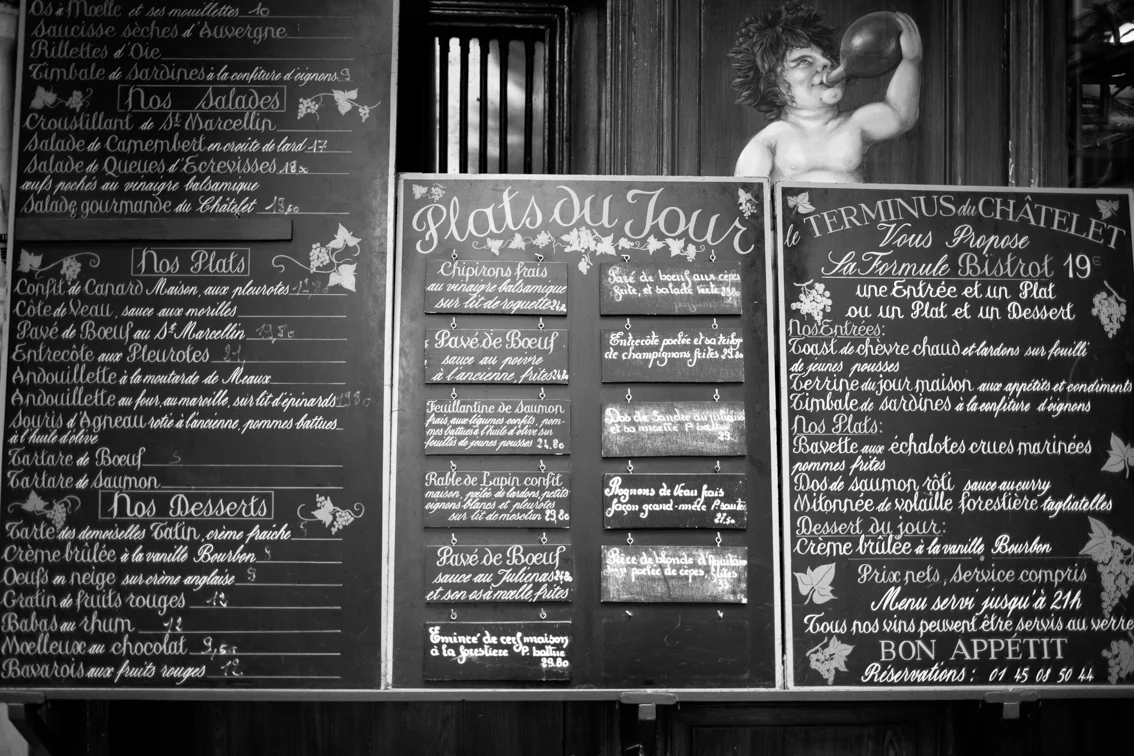 Os à Moelle et ses mouillettes 10
Saucisse sèches d'Auvergne
Rillettes d'Oie
Timbale de Sardines à la confiture d'oignons 9
Nos Salades
Croustillant de St Marcellin
Salade de Camembert en croûte de lard 17
Salade de Queues d'Ecrevisses
œufs pochés au vinaigre balsamique
Salade gourmande du Châtelet
Nos Plats
Confit de Canard Maison, aux pleurotes
Côte de Veau, sauce aux morilles
Pavé de Bœuf au St Marcellin
Entrecôte aux Pleurotes
Andouillette à la moutarde de Meaux
Andouillette au four, au maroille, sur lit d'épinards
Souris d'Agneau rotie à l'ancienne, pommes battues
à l'huile d'olive
Tartare de Bœuf
Tartare de Saumon
Nos Desserts
Tarte des demoiselles Tatin, crème fraiche
Crème brûlée à la vanille Bourbon
Oeufs en neige sur crème anglaise
Gratin de fruits rouges
Babas au rhum 12
Moelleux au chocolat
Bavarois aux fruits rouges 12
Plats du Jour
Chipirons frais
au vinaigre balsamique
sur lit de roquette
Pavé de Bœuf
sauce au poivre
à l'ancienne, frites
Feuillantine de Saumon
frais aux légumes confits, pom-
mes battues à l'huile d'olive sur
fouillés de jeunes pousses 24.80
Rable de Lapin confit
maison, poêlée de lardons, petits
oignons blancs et pleurotes
sur lit de mesclun 23,80
Pavé de Bœuf
sauce au Juliénas
et son os à mœlle, frites
Emincé de cerf maison
à la forestière P. battue
29.80
Pavé de bœuf aux cèpes
frite, et salade verte
Entrecôte poêlée et sa
de champignons frites
Dos de Sandre au
et sa P. battue
Rognons de Veau frais
façon grand-mère P. sautées
27.50
Pièce de blonde d'Aquitaine
poêlée de cèpes, frites
le TERMINUS du CHÂTELET
Vous Propose
La Formule Bistrot 19€
une Entrée et un Plat
ou un Plat et un Dessert
Nos Entrées:
Toast de chèvre chaud et lardons sur fouilli
de jeunes pousses
Terrine du jour maison aux appétits et condiments
Timbale de sardines à la confiture d'oignons
Nos Plats:
Bavette aux échalotes crues marinées
pommes frites
Dos de saumon rôti sauce au curry
Mitonnée de volaille forestière tagliatelles
Dessert du jour:
Crème brûlée à la vanille Bourbon
Prix nets, Service compris
Menu servi jusqu'à 21h
Tous nos vins peuvent être servis au verre
BON APPÉTIT
Réservations: 01 45 08 50 44